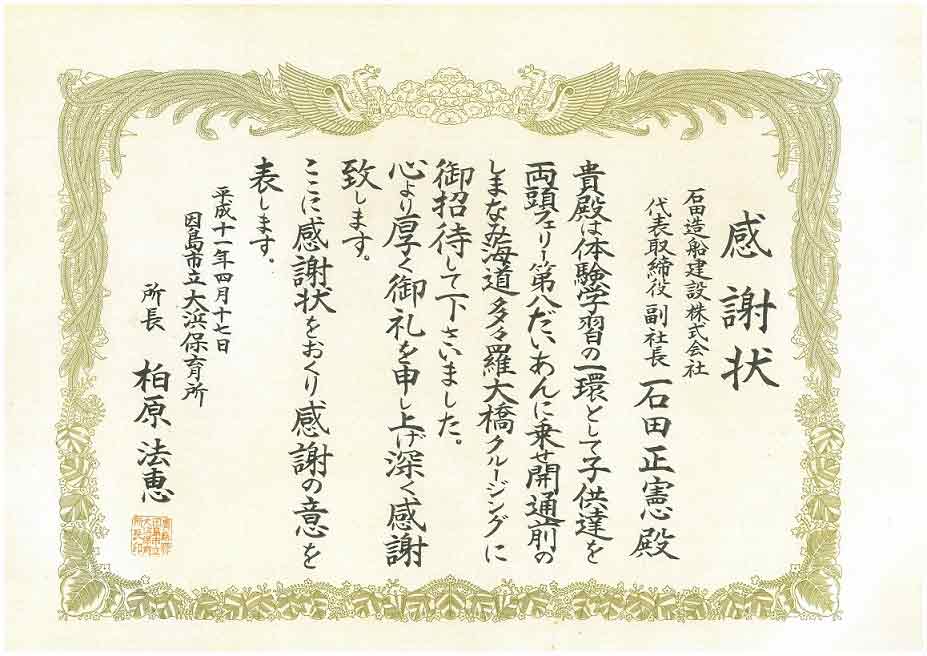 感謝状
石田造船建設株式会社
代表取締役 副社長 石田正憲殿
貴殿は体験学習の一環として子供達を
両頭フェリー第八だいあんに乗せ開通前の
しまなみ海道多々羅大橋クルージングに
御招待して下さいました。
心より厚く御礼を申し上げ深く感謝
致します。
ここに感謝状をおくり感謝の意を
表します。
平成十一年四月十七日
因島市立大浜保育所
所長 柏原法恵